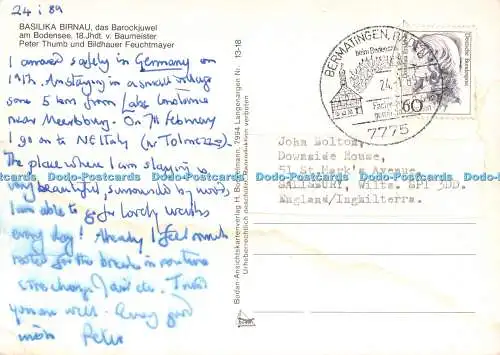 24 i 89
BASILIKA BIRNAU, das Barockjuwel
am Bodensee. 18.Jhdt. v. Baumeister
Peter Thumb und Bildhauer Feuchtmayer
I arrived safely in Germany on
19th. Am staying in a small village
some 5 km from Lake Constance
near Meersburg. On 7th February
I go on to NE Italy (nr Tolmezzo).
The place where I am staying is
very beautiful, surrounded by woods
I am able to go for lovely walks
every day! Already I feel much
rested for the break in routine
(+ change) air etc. I trust
you are well. Every good
wish Peter
Bodan-Ansichtskartenverlag H. Bockelmann, 7994 Langenargen Nr. 13-18
Urheberrechtlich geschützt
BERMATINGEN, BADEN
beim Bodensee
24.
7775
60
Deutsche Bundespost
John Bolton,
Downside House,
51 St Mark's Avenue,
SALISBURY, Wilts. SP1 3DD.
England/Inghilterra.
Dodo-Postcards Dodo-Postcards Dodo-Postcards